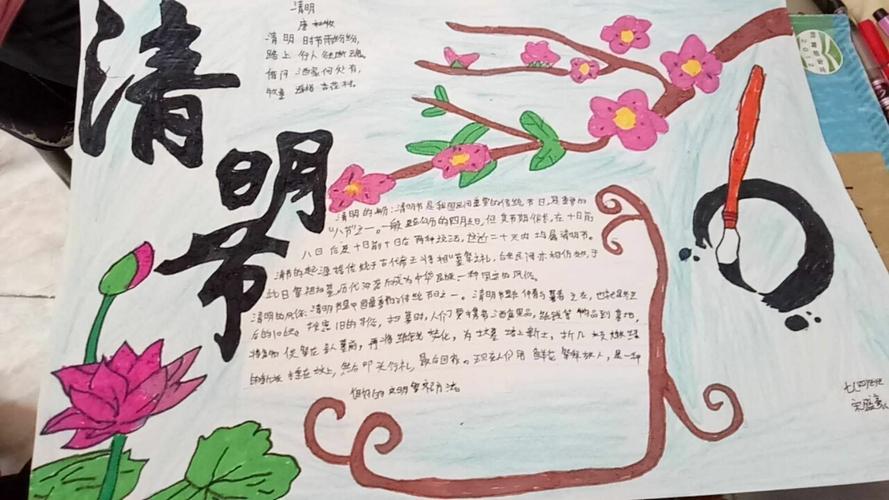 清明节
清明
唐 杜牧
清明时节雨纷纷,
路上行人欲断魂。
借问酒家何处有,
牧童遥指杏花村。
清明的时期:清明节是我国民间重要的传统节日,是重要的
"八节"之一。一般是在公历的四月五日,但其节期很长,有十日前
八日后及十日前十日后两种说法,这近二十天内均属清明节。
清明节的起源据传始于古代帝王将相"墓祭"之礼,后来民间亦相仿效,于
此日祭祖扫墓,历代沿袭而成为中华民族一种固定的风俗。
清明的风俗:清明节是中国最重要的传统节日之一。
后的10多天。按照旧的习俗,扫墓时,人们要携带酒食果品,纸钱等物品到墓地,
将食物供祭在亲人墓前,再将纸钱焚化,为坟墓培上新土,折几枝嫩绿
的新枝插在坟上,然后叩头行礼,最后回家。现在人们用鲜花祭拜故人,是一种
很好的文明祭奠方法。
七四班